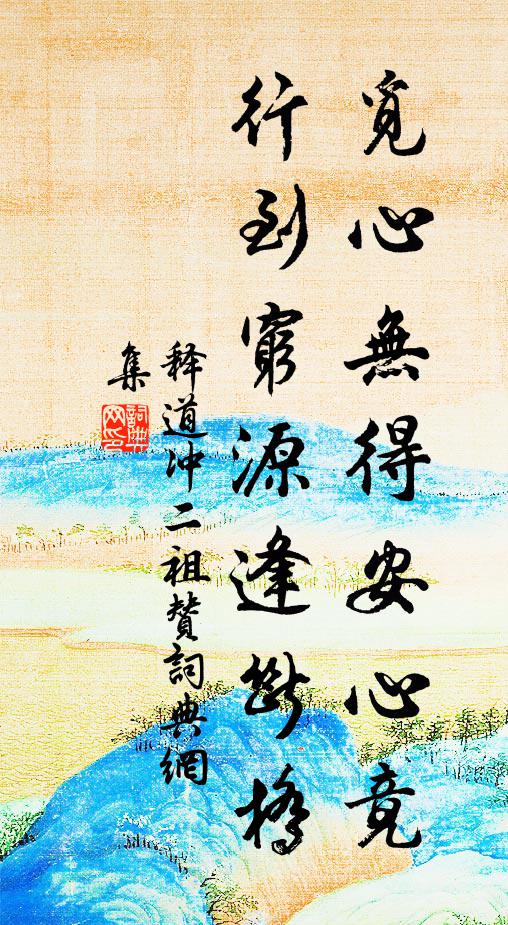 覓心無得安心竟
行到窮源逢斷橋
释道冲二祖赞詞典網
集
詞典
网印